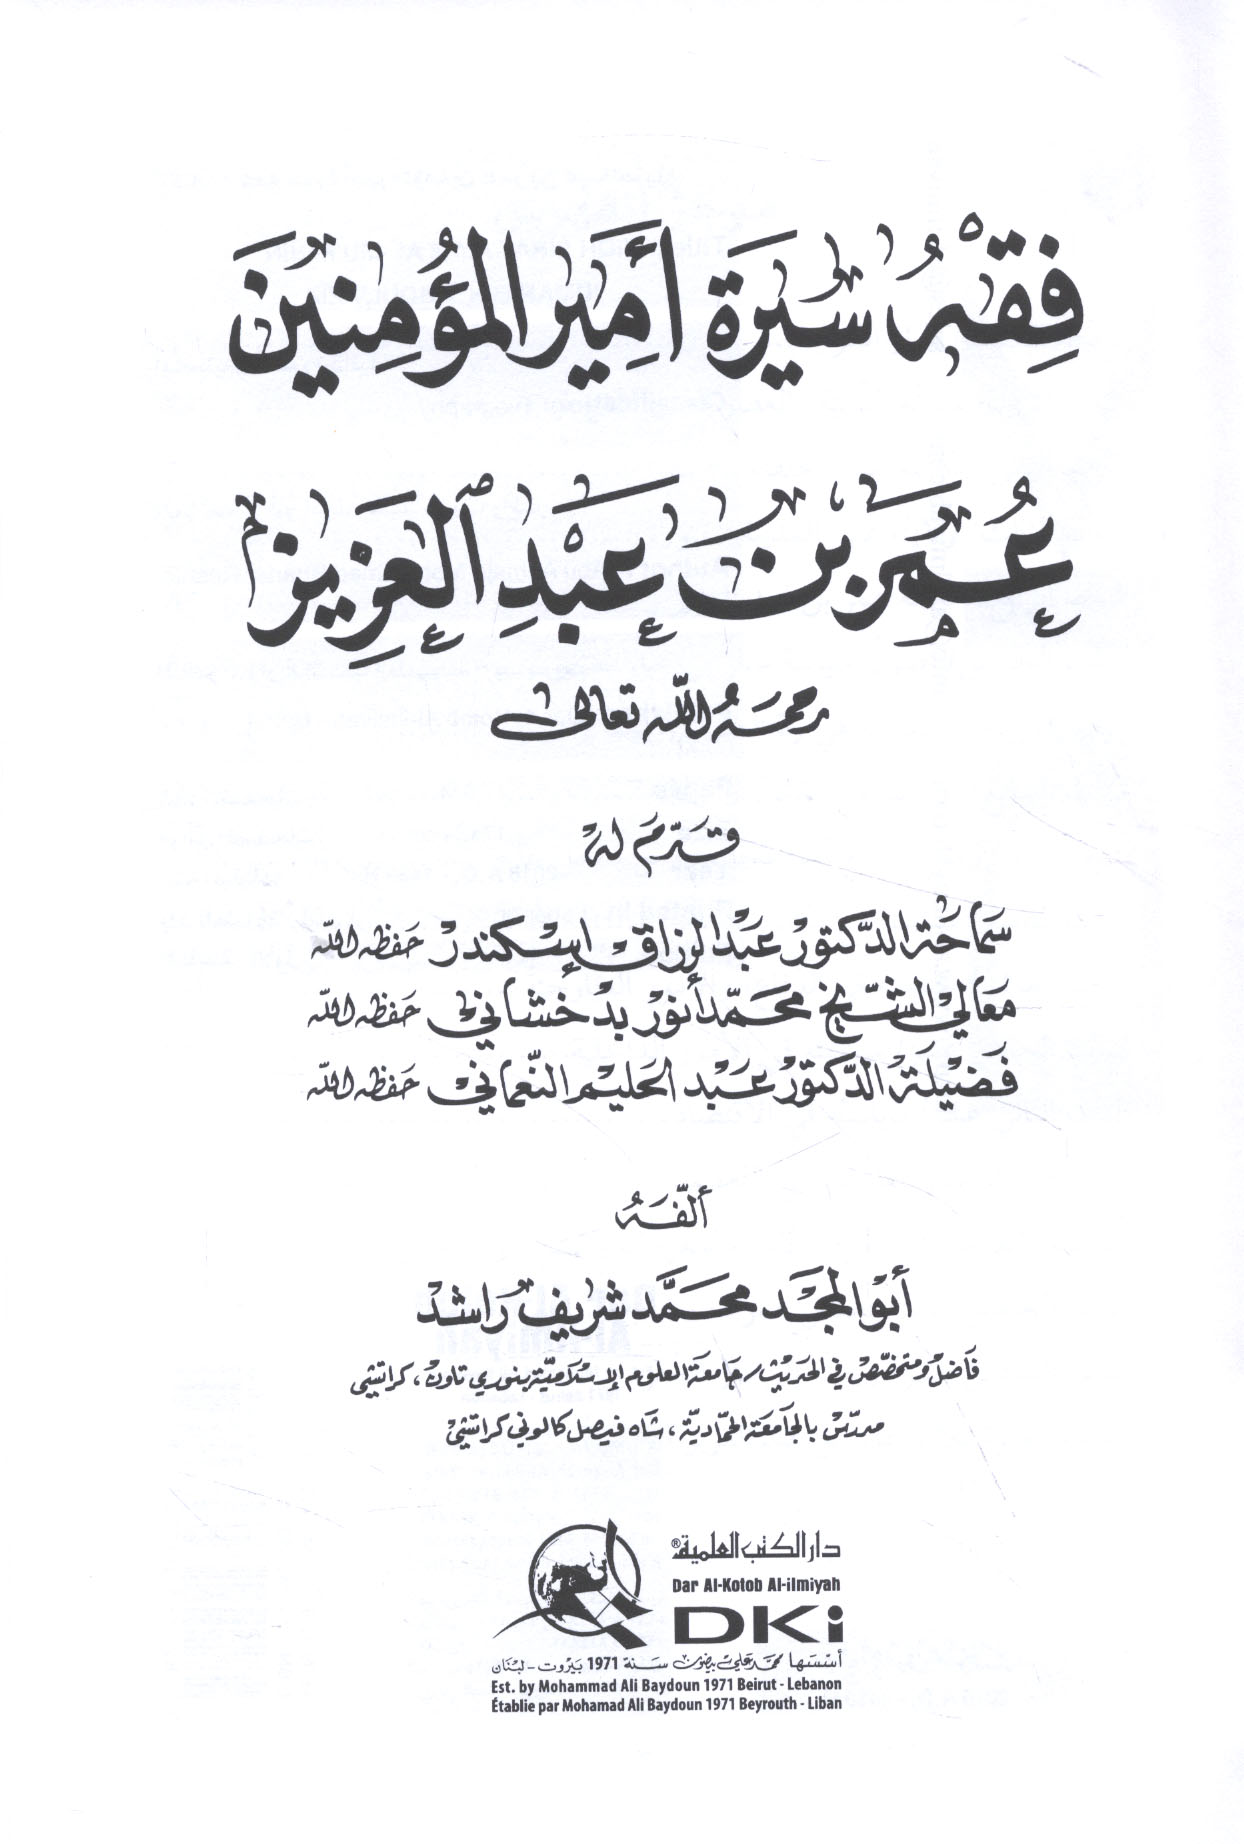 فِقْهُ سِيرَةِ أَمِيرِ المُؤْمِنِينَ
عُمَرَ بْنِ عَبْدِ العَزِيزِ
رحمه الله تعالى
قدّمَ لهُ
سَمَاحَة الدَّكتور عَبْد الرزاق إسْكندرْ حَفظه الله
مَعَالي الشَّيخ محمَّد أنوَرْ بدْخشَاني حَفظه الله
فَضيْلَة الدَّكتوْر عَبْد الحَليْم النّعمَانيْ حَفظه الله
ألّفَهُ
أبُو المَجْد محمَّد شريف رَاشدْ
فَاضلْ ومتخصّصْ في الحَديْث / جَامعَة العلوم الإسْلاميّة بنوري تاونْ، كراتشي
مدرّسْ بالجَامعَة الحمّاديّة، شَاه فيصل كالوني كراتشيْ
دار الكتب العلمية®
Dar Al-Kotob Al-ilmiyah
DKi
أسّسَها محمد علي بيضون سَنة 1971 بَيْروت - لبْنان
Est. by Mohammad Ali Baydoun 1971 Beirut - Lebanon
Établie par Mohamad Ali Baydoun 1971 Beyrouth - Liban